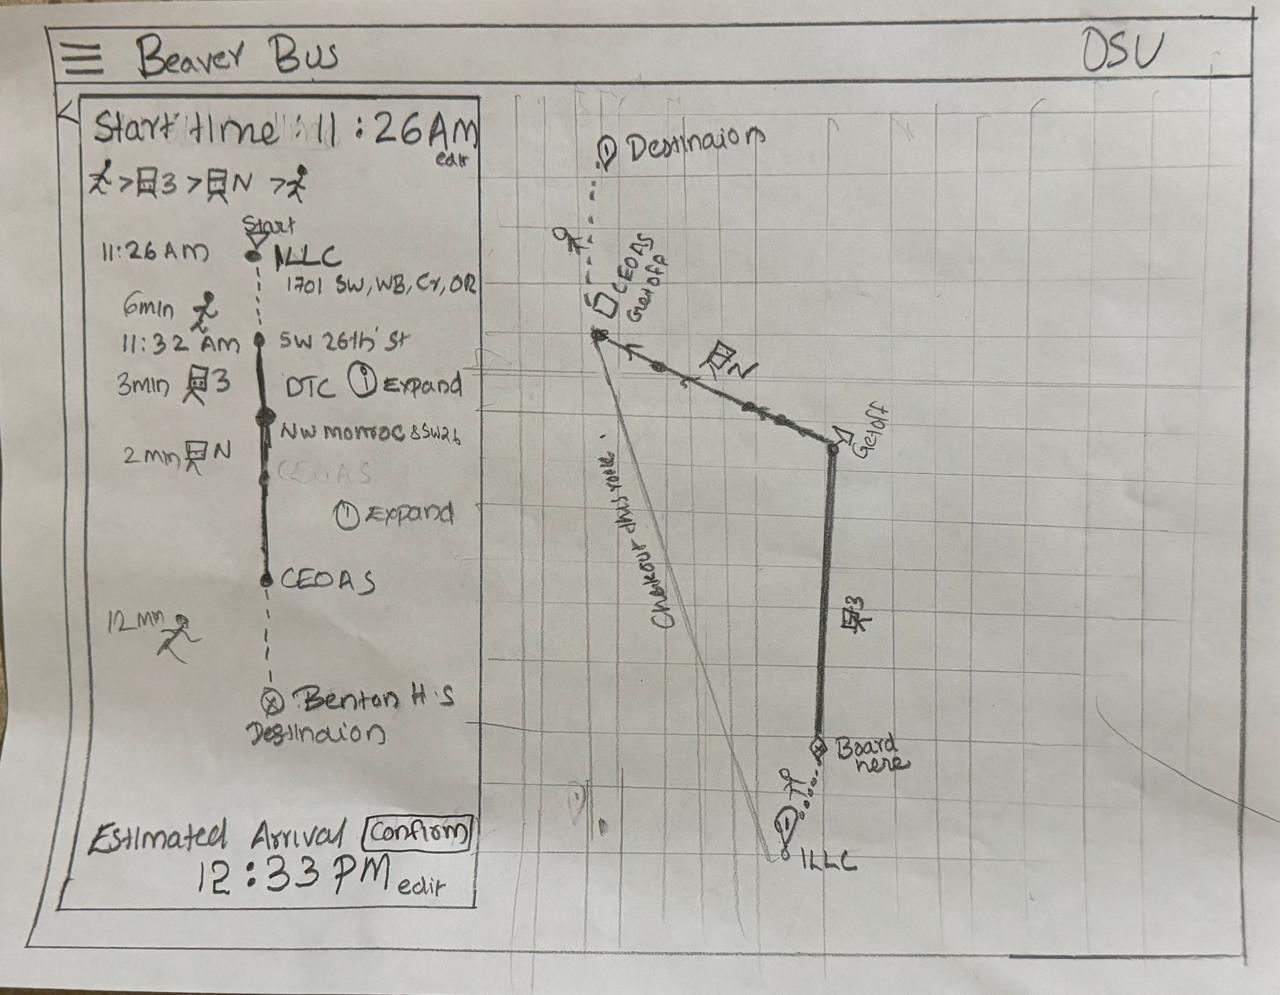 Beaver Bus
OSU
Start time : 11 : 26 AM
edit
> 3 > N >
Start
11:26 AM
ILLC
1701 SW, WB, Cr, OR
6min
11:32 AM
SW 26th St
3min 3
DTC Expand
NW monroe & SW26
2 min N
CEOAS
Expand
CEOAS
12 min
Benton H.S
Destinaion
Estimated Arrival Confirm
12:33 PM edit
Destinaion
CEOAS
Get off
N
Get off
Chekout this route
3
Board here
ILLC